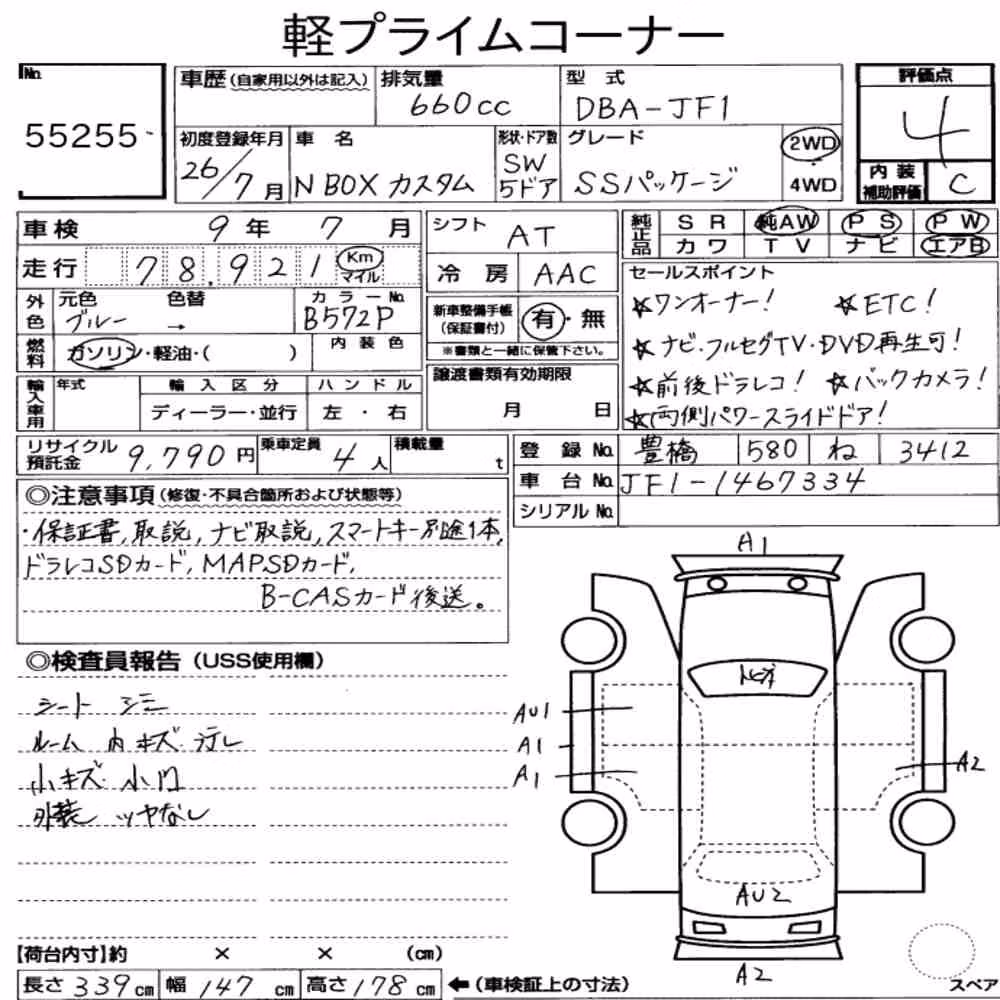 軽プライムコーナー
No. 55255
車歴(自家用以外は記入) 排気量 660cc 型式 DBA-JF1 評価点 4
初度登録年月 26/7月 車名 N BOX カスタム 形状・ドア数 SW 5ドア グレード SSパッケージ 2WD・4WD
内装補助評価 C
車検 9年 7月 シフト AT 純正品 SR 純AW PS PW
カワ TV ナビ エアB
走行 78,921 Km マイル 冷房 AAC セールスポイント
外色 元色 ブルー 色替 → カラーNo. B572P 新車整備手帳(保証書付) 有・無
※書類と一緒に保管下さい。
☆ワンオーナー! ☆ETC!
☆ナビ・フルセグTV・DVD再生可!
☆前後ドラレコ! ☆バックカメラ!
☆両側パワースライドドア!
燃料 ガソリン・軽油・( ) 内装色
輸入車用 年式 輸入区分 ハンドル 譲渡書類有効期限
ディーラー・並行 左・右 月 日
リサイクル預託金 9,790円 乗車定員 4人 積載量 t 登録No. 豊橋 580 ね 3412
車台No. JF1-1467334
シリアルNo.
◎注意事項(修復・不具合箇所および状態等)
・保証書,取説,ナビ取説,スマートキー別途1本,
ドラレコSDカード,MAPSDカード,
B-CASカード後送。
◎検査員報告(USS使用欄)
シート シミ
ルーム内キズ 汚レ
小キズ 小凹
外装 ツヤなし
A1
トビキ
AU1
A1
A1
A2
AU2
A2
スペア
【荷台内寸】約 × × (cm)
長さ 339cm 幅 147cm 高さ 178cm ←(車検証上の寸法)